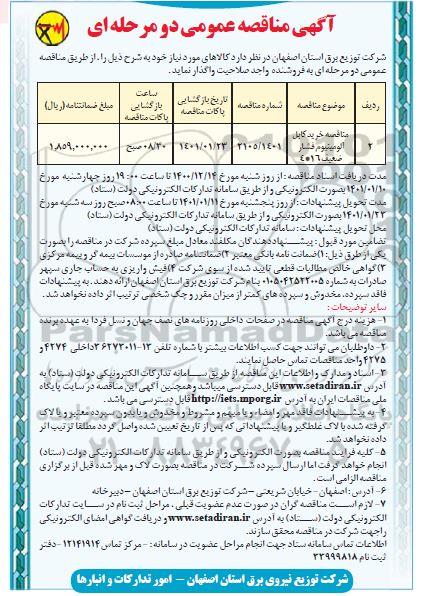 آگهی مناقصه عمومی دو مرحله ای
شرکت توزیع برق استان اصفهان در نظر دارد کالاهای مورد نیاز خود به شرح ذیل را، از طریق مناقصه
عمومی دو مرحله ای به فروشنده واجد صلاحیت واگذار نماید.
ردیف موضوع مناقصه شماره مناقصه تاریخ بازگشایی پاکات مناقصه ساعت بازگشایی پاکات مناقصه مبلغ ضمانتنامه (ریال)
۲ مناقصه خرید کابل آلومینیوم فشار ضعیف ۱۶*۴ ۲۱۰۵/۱۴۰۱ ۱۴۰۱/۰۱/۲۳ ۰۸/۳۰ صبح ۱,۸۵۹,۰۰۰,۰۰۰
مدت دریافت اسناد مناقصه: از روز شنبه مورخ ۱۴۰۰/۱۲/۱۴ تا ساعت ۱۹:۰۰ روز چهارشنبه مورخ
۱۴۰۱/۰۱/۱۰ بصورت الکترونیکی و از طریق سامانه تدارکات الکترونیکی دولت (ستاد)
مدت تحویل پیشنهادات: از روز پنجشنبه مورخ ۱۴۰۱/۰۱/۱۱ تا ساعت ۰۸:۰۰ صبح روز سه شنبه مورخ
۱۴۰۱/۰۱/۲۳ بصورت الکترونیکی و از طریق سامانه تدارکات الکترونیکی دولت (ستاد)
محل تحویل پیشنهادات: سامانه تدارکات الکترونیکی دولت (ستاد)
تضامین مورد قبول: پیشنهاددهندگان مکلفند معادل مبلغ سپرده شرکت در مناقصه را بصورت
یکی از طرق ذیل: ۱)ضمانت نامه بانکی معتبر ۲)ضمانتنامه صادره از موسسات بیمه گر و بیمه مرکزی
۳)گواهی خالص مطالبات قطعی تایید شده از سوی شرکت ۴)فیش واریزی به حساب جاری سپهر
صادرات به شماره ۰۱۰۵۰۴۲۵۲۲۰۰۵ بنام شرکت توزیع برق استان اصفهان ارائه دهند. به پیشنهادات
فاقد سپرده، مخدوش و سپرده های کمتر از میزان مقرر و چک شخصی ترتیب اثر داده نخواهد شد.
سایر توضیحات:
۱- هزینه درج آگهی مناقصه در صفحات داخلی روزنامه های نصف جهان و نسل فردا به عهده برنده
مناقصه می باشد.
۲- داوطلبان می توانند جهت کسب اطلاعات بیشتر با شماره تلفن ۱۳-۳۶۲۷۳۰۱۱ داخلی ۴۲۷۴ و
۴۲۷۵ واحد مناقصات تماس حاصل نمایند.
۳- اسناد و مدارک و اطلاعات این مناقصه از طریق سامانه تدارکات الکترونیکی دولت (ستاد) به
آدرس www.setadiran.ir قابل دسترسی میباشد و همچنین آگهی این مناقصه در سایت پایگاه
ملی مناقصات ایران به آدرس http://iets.mporg.ir قابل دسترسی می باشد.
۴- به پیشنهادات فاقد مهر و امضاء و یا مبهم و مشروط و مخدوش و یا بدون سپرده معتبر و یا لاک
گرفته شده با لاک غلطگیر و یا پیشنهاداتی که پس از تاریخ تعیین شده واصل گردد مطلقا ترتیب اثر
داده نخواهد شد.
۵- کلیه فرایند مناقصه بصورت الکترونیکی و از طریق سامانه تدارکات الکترونیکی دولت (ستاد)
انجام خواهد گرفت اما ارسال سپرده شرکت در مناقصه بصورت لاک و مهر شده قبل از برگزاری
مناقصه الزامی است.
۶- آدرس: اصفهان - خیابان شریعتی - شرکت توزیع برق استان اصفهان - دبیرخانه
۷- لازم است مناقصه گران در صورت عدم عضویت قبلی، مراحل ثبت نام در سایت تدارکات
الکترونیکی دولت (ستاد) به آدرس www.setadiran.ir و دریافت گواهی امضای الکترونیکی
را جهت شرکت در مناقصه محقق سازند.
اطلاعات تماس سامانه ستاد جهت انجام مراحل عضویت در سامانه: - مرکز تماس ۱۲۱۴۱۹۱۴ - دفتر
ثبت نام ۳۳۹۹۹۸۱۸
شرکت توزیع نیروی برق استان اصفهان - امور تدارکات و انبارها